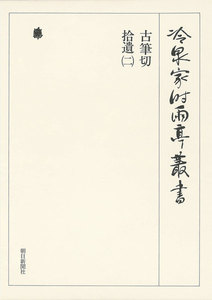 冷泉家時雨亭叢書
古筆切
拾遺(二)
朝日新聞社